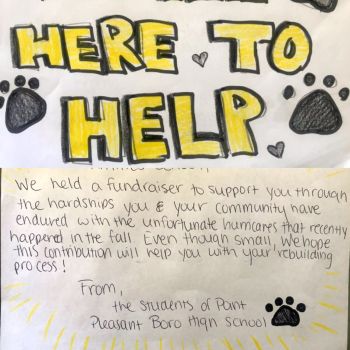 HERE TO
HELP.
We held a fundraiser to support you through
the hardships you & your community have
endured with the unfortunate hurricanes that recently
happened in the fall. Even though small, we hope
this contribution will help you with your rebuilding
process!
From,
the students of Point
Pleasant Boro High School